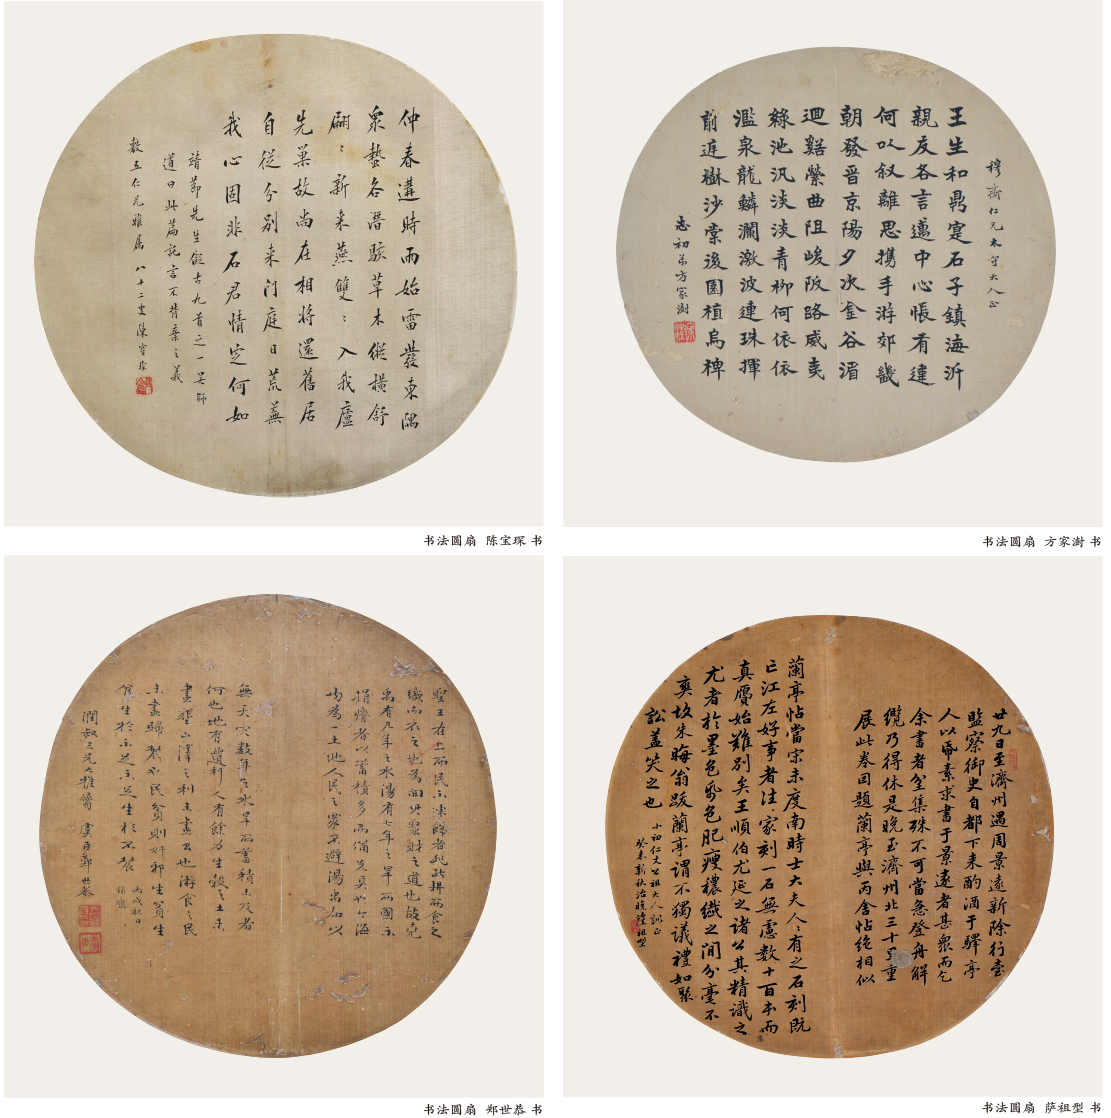 仲春遘時雨始雷發東隅
眾蟄各潛駭草木縱橫舒
翩〻新来燕雙〻入我廬
先巢故尚在相將還舊居
自從分別来門庭日荒蕪
我心固非石君情定何如
靖節先生擬古九首之一吳師
道曰此篇託言不背棄之義
敷五仁兄雅屬 八十二叟陳寶琛
书法圆扇 陈宝琛 书
穆齋仁兄太守大人正
王生和鼎寔石子鎮海沂
親友各言邁中心悵有違
何以敘離思攜手游郊畿
朝發晋京陽夕次金谷湄
迴谿縈曲阻峻阪路威夷
綠池汎淡淡青柳何依依
濫泉龍鱗瀾激波連珠揮
前庭樹沙棠後園植烏椑
志初弟方家澍
书法圆扇 方家澍 书
聖王在上而民不凍餒者非能耕而食之
織而衣之也為開其資財之道也故堯
禹有九年之水湯有七年之旱而國亡
捐瘠者以蓄積多而備先具也今海
内為一土地人民之衆不避湯禹加以
無天災數年之水旱而蓄積未及者
何也地有遺利人有餘力生穀之土未
盡墾山澤之利未盡出也游食之民
未盡歸農也民貧則奸邪生貧生
於不足不足生於不農 丙戌秋日 錄應
潤叔三兄大雅屬 虞臣鄭世恭
书法圆扇 郑世恭 书
廿九日至濟州遇周景遠新除行臺
監察御史自都下来酌酒于驛亭
人以帋素求書于景遠者甚衆而乞
余書者坌集殊不可當急登舟解
纜乃得休是晚至濟州北三十里重
展此卷因題蘭亭與丙舍帖絕相似
蘭亭帖當宋未度南時士大夫人〻有之石刻既
亡江左好事者往〻家刻一石無慮數十百本而
真贗始難別矣王順伯尤延之諸公其精識之
尤者於墨色帋色肥瘦穠纖之間分毫不
爽故朱晦翁跋蘭亭謂不獨議禮如聚
訟盖笑之也
小初仁丈公祖大人誨正
癸未新秋治晚薩祖型
书法圆扇 萨祖型 书